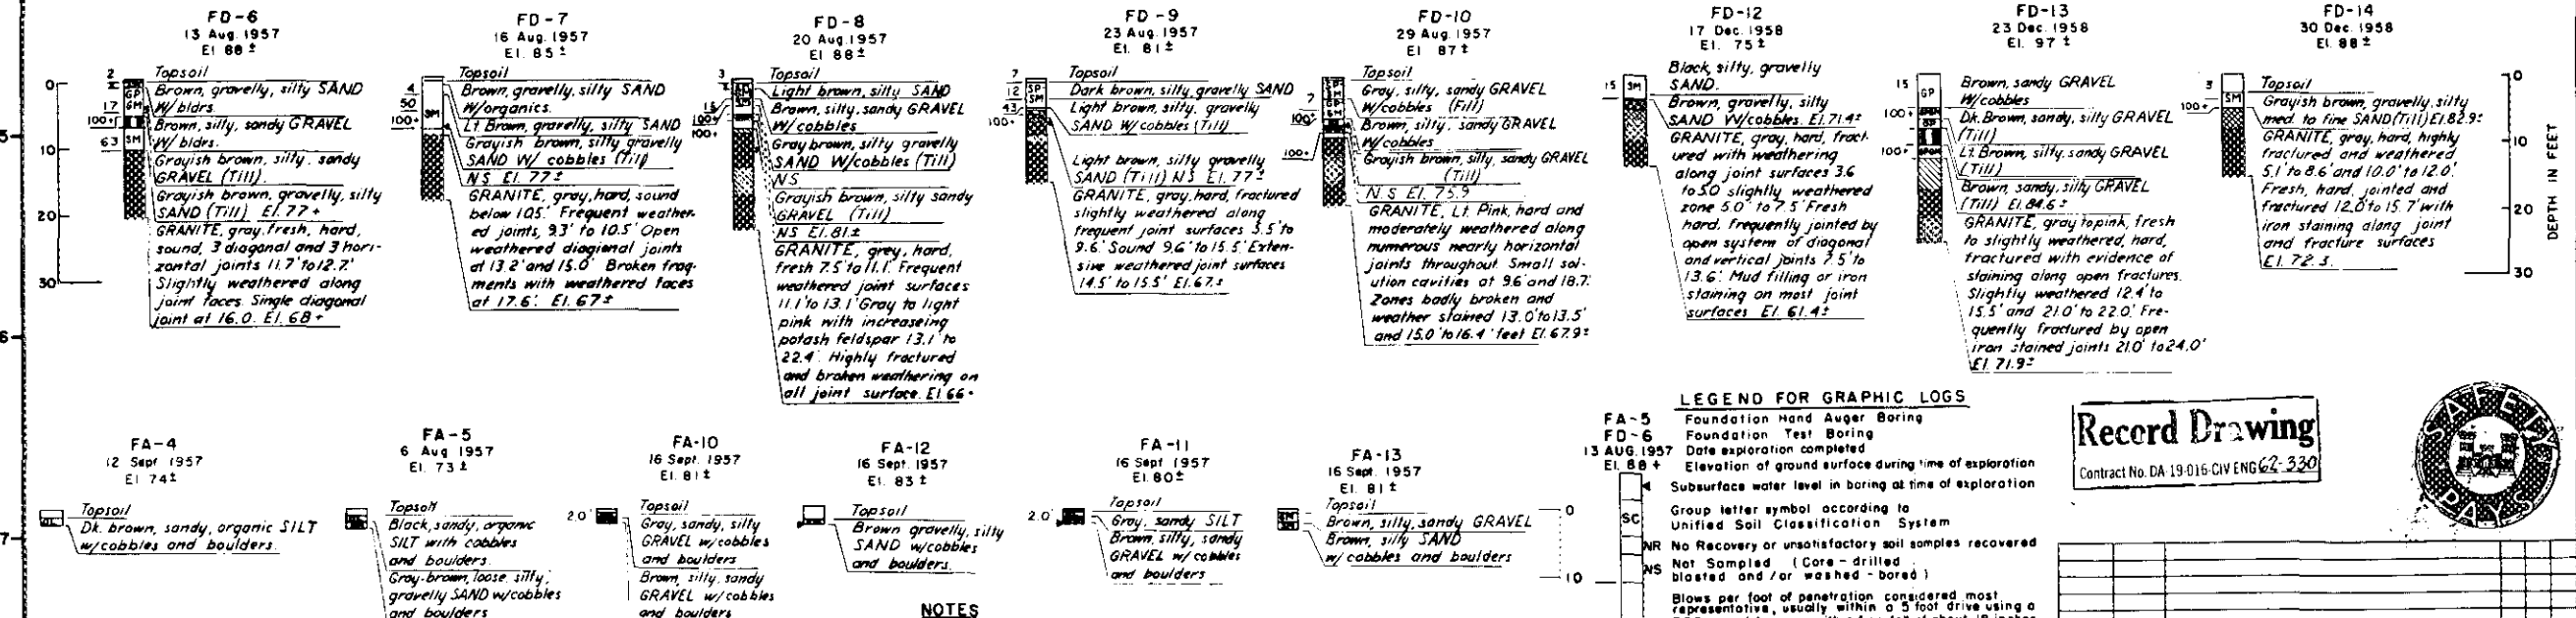 FD-6
13 Aug. 1957
El 88±
2
17
100+
63
Topsoil
Brown, gravelly, silty SAND
W/bldrs.
Brown, silty, sandy GRAVEL
W/ bldrs.
Grayish brown, silty, sandy
GRAVEL (Till).
Grayish brown, gravelly, silty
SAND (Till) El. 77+
GRANITE, gray, fresh, hard,
sound, 3 diagonal and 3 hori-
zontal joints 11.7' to 12.7.'
Slightly weathered along
joint faces. Single diagonal
joint at 16.0. El. 68+
GP
GM
SM
0
5
10
20
30
FD-7
16 Aug. 1957
El. 85±
4
50
100+
SM
Topsoil
Brown, gravelly, silty SAND
W/organics.
Lt. Brown, gravelly, silty SAND
Grayish brown, silty gravelly
SAND W/ cobbles (Till)
NS El. 77±
GRANITE, gray, hard, sound
below 10.5.' Frequent weather-
ed joints, 9.3' to 10.5' Open
weathered diagional joints
at 13.2' and 15.0' Broken frag-
ments with weathered faces
at 17.6'. El. 67±
FD-8
20 Aug. 1957
El 88±
3
15
100+
100+
Topsoil
Light brown, silty SAND
Brown, silty, sandy GRAVEL
W/cobbles
Gray brown, silty gravelly
SAND W/cobbles (Till)
NS
Grayish brown, silty sandy
GRAVEL (Till)
NS El. 81±
GRANITE, grey, hard,
fresh 7.5' to 11.1'. Frequent
weathered joint surfaces
11.1' to 13.1' Gray to light
pink with increaseing
potash feldspar 13.1' to
22.4'. Highly fractured
and broken weathering on
all joint surface. El. 66-
FD-9
23 Aug. 1957
El. 81±
7
12
43
100+
SP
SM
Topsoil
Dark brown, silty, gravelly SAND
Light brown, silty, gravelly
SAND W/cobbles (Till)
Light brown, silty gravelly
SAND (Till) NS El. 77±
GRANITE, gray, hard, fractured
slightly weathered along
frequent joint surfaces 3.5' to
9.6.' Sound 9.6' to 15.5' Exten-
sive weathered joint surfaces
14.5' to 15.5' El. 67±
FD-10
29 Aug. 1957
El 87±
7
100+
100+
Topsoil
Gray, silty, sandy GRAVEL
W/cobbles (Fill)
Brown, silty, sandy GRAVEL
W/cobbles
Grayish brown, silty, sandy GRAVEL
(Till)
N.S El. 75.9
GRANITE, Lt. Pink, hard and
moderately weathered along
numerous nearly horizontal
joints throughout. Small sol-
ution cavities at 9.6' and 18.7.'
Zones badly broken and
weather stained 13.0' to 13.5'
and 15.0' to 16.4' feet El. 67.9±
FD-12
17 Dec. 1958
El. 75±
15
SM
Black, silty, gravelly
SAND.
Brown, gravelly, silty
SAND W/cobbles. El. 71.4±
GRANITE, gray, hard, fract-
ured with weathering
along joint surfaces 3.6
to 5.0' slightly weathered
zone 5.0' to 7.5' Fresh
hard, frequently jointed by
open system of diagonal
and vertical joints 7.5' to
13.6.' Mud filling or iron
staining on most joint
surfaces El. 61.4±
FD-13
23 Dec. 1958
El. 97±
15
100+
100+
GP
Brown, sandy GRAVEL
W/cobbles
Dk. Brown, sandy, silty GRAVEL
(Till)
Lt. Brown, silty, sandy GRAVEL
(Till)
Brown, sandy, silty GRAVEL
(Till) El. 84.6±
GRANITE, gray to pink, fresh
to slightly weathered, hard,
fractured with evidence of
staining along open fractures.
Slightly weathered 12.4' to
15.5' and 21.0' to 22.0' Fre-
quently fractured by open
iron stained joints 21.0' to 24.0'
El. 71.9±
FD-14
30 Dec. 1958
El. 88±
3
100+
SM
Topsoil
Grayish brown, gravelly, silty
med. to fine SAND (Till) El. 82.9±
GRANITE, gray, hard, highly
fractured and weathered
5.1' to 8.6' and 10.0' to 12.0.'
Fresh, hard, jointed and
fractured 12.0' to 15.7' with
iron staining along joint
and fracture surfaces
El. 72.3.
0
10
20
30
DEPTH IN FEET
6
7
FA-4
12 Sept 1957
El 74±
Topsoil
Dk. brown, sandy, organic SILT
w/cobbles and boulders.
FA-5
6 Aug 1957
El. 73±
Topsoil
Black, sandy, organic
SILT with cobbles
and boulders.
Gray-brown, loose, silty,
gravelly SAND w/cobbles
and boulders
FA-10
16 Sept. 1957
El. 81±
2.0'
Topsoil
Gray, sandy, silty
GRAVEL w/cobbles
and boulders
Brown, silty, sandy
GRAVEL w/cobbles
and boulders
FA-12
16 Sept. 1957
El. 83±
Topsoil
Brown gravelly, silty
SAND w/cobbles
and boulders.
NOTES
FA-11
16 Sept 1957
El. 80±
2.0'
Topsoil
Gray, sandy SILT
Brown, silty, sandy
GRAVEL w/ cobbles
and boulders
FA-13
16 Sept. 1957
El. 81±
Topsoil
Brown, silty, sandy GRAVEL
Brown, silty SAND
w/cobbles and boulders
0
10
LEGEND FOR GRAPHIC LOGS
FA-5 Foundation Hand Auger Boring
FD-6 Foundation Test Boring
13 AUG. 1957 Date exploration completed
El. 88+ Elevation of ground surface during time of exploration
Subsurface water level in boring at time of exploration
SC Group letter symbol according to
Unified Soil Classification System
NR No Recovery or unsatisfactory soil samples recovered
NS Not Sampled (Core-drilled
blasted and/or washed-bored)
Blows per foot of penetration considered most
representative, usually within a 5 foot drive using a
Record Drawing
Contract No. DA-19-016-CIV ENG 62-330
SAFETY
PAYS